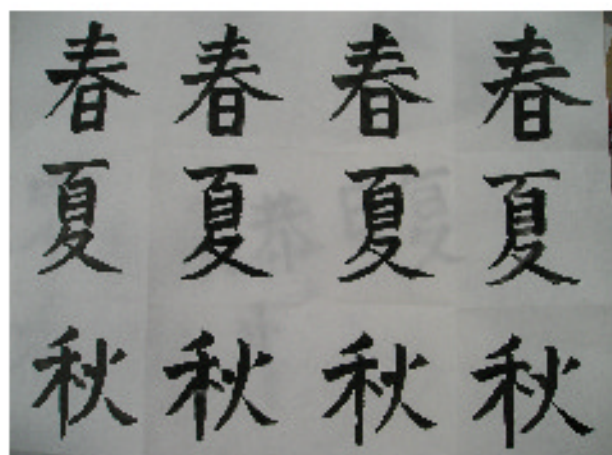 春春春春
夏夏夏夏
秋秋秋秋